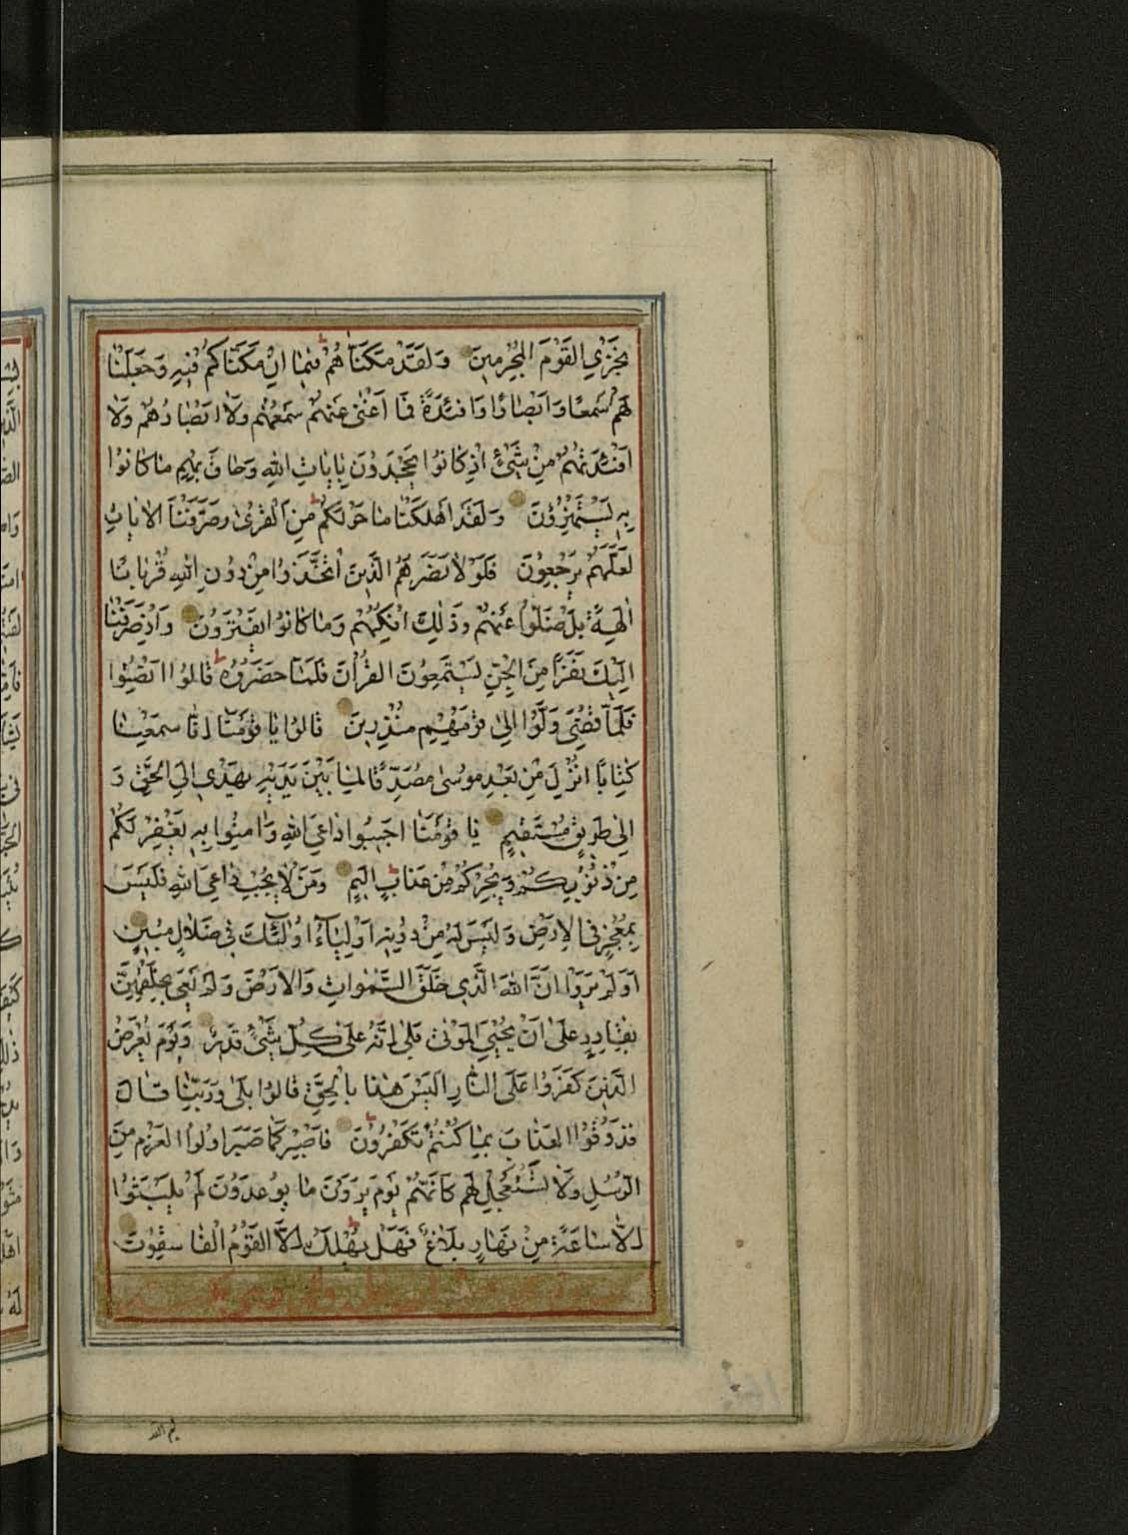 نَجْزِي القَوْمَ المُجْرِمِينَ وَلَقَدْ مَكَّنَّاهُمْ فِيمَا اِنْ مَكَّنَّاكُمْ فِيهِ وَجَعَلْنَا
لَهُمْ سَمْعًا وَاَبْصَارًا وَاَفْئِدَةً فَمَا اَغْنٰى عَنْهُمْ سَمْعُهُمْ وَلَا اَبْصَارُهُمْ وَلَا
اَفْئِدَتُهُمْ مِنْ شَيْئٍ اِذْ كَانُوا يَجْحَدُونَ بِاٰيَاتِ اللهِ وَحَاقَ بِهِمْ مَا كَانُوا
بِهِ يَسْتَهْزِؤُنَ وَلَقَدْ اَهْلَكْنَا مَا حَوْلَكُمْ مِنَ الْقُرٰى وَصَرَّفْنَا الْاٰيَاتِ
لَعَلَّهُمْ يَرْجِعُونَ فَلَوْلَا نَصَرَهُمُ الَّذِينَ اتَّخَذُوا مِنْ دُونِ اللهِ قُرْبَانًا
اٰلِهَةً بَلْ ضَلُّوا عَنْهُمْ وَذٰلِكَ اِفْكُهُمْ وَمَا كَانُوا يَفْتَرُونَ وَاِذْ صَرَفْنَا
اِلَيْكَ نَفَرًا مِنَ الْجِنِّ يَسْتَمِعُونَ القُرْاٰنَ فَلَمَّا حَضَرُوهُ قَالُوا اَنْصِتُوا
فَلَمَّا قُضِيَ وَلَّوْا اِلٰى قَوْمِهِمْ مُنْذِرِينَ قَالُوا يَا قَوْمَنَا اِنَّا سَمِعْنَا
كِتَابًا اُنْزِلَ مِنْ بَعْدِ مُوسٰى مُصَدِّقًا لِمَا بَيْنَ يَدَيْهِ يَهْدِي اِلَى الْحَقِّ وَ
اِلٰى طَرِيقٍ مُسْتَقِيمٍ يَا قَوْمَنَا اَجِيبُوا دَاعِيَ اللهِ وَاٰمِنُوا بِهِ يَغْفِرْ لَكُمْ
مِنْ ذُنُوبِكُمْ وَيُجِرْكُمْ مِنْ عَذَابٍ اَلِيمٍ وَمَنْ لَا يُجِبْ دَاعِيَ اللهِ فَلَيْسَ
بِمُعْجِزٍ فِي الْاَرْضِ وَلَيْسَ لَهُ مِنْ دُونِهِ اَوْلِيَاءُ اُولٰئِكَ فِي ضَلَالٍ مُبِينٍ
اَوَلَمْ يَرَوْا اَنَّ اللهَ الَّذِي خَلَقَ السَّمٰوَاتِ وَالْاَرْضَ وَلَمْ يَعْيَ بِخَلْقِهِنَّ
بِقَادِرٍ عَلٰى اَنْ يُحْيِيَ الْمَوْتٰى بَلٰى اِنَّهُ عَلٰى كُلِّ شَيْئٍ قَدِيرٌ وَيَوْمَ يُعْرَضُ
الَّذِينَ كَفَرُوا عَلَى النَّارِ اَلَيْسَ هٰذَا بِالْحَقِّ قَالُوا بَلٰى وَرَبِّنَا قَالَ
فَذُوقُوا العَذَابَ بِمَا كُنْتُمْ تَكْفُرُونَ فَاصْبِرْ كَمَا صَبَرَ اُولُوا العَزْمِ مِنَ
الرُّسُلِ وَلَا تَسْتَعْجِلْ لَهُمْ كَاَنَّهُمْ يَوْمَ يَرَوْنَ مَا يُوعَدُونَ لَمْ يَلْبَثُوا
اِلَّا سَاعَةً مِنْ نَهَارٍ بَلَاغٌ فَهَلْ يُهْلَكُ اِلَّا القَوْمُ الْفَاسِقُونَ